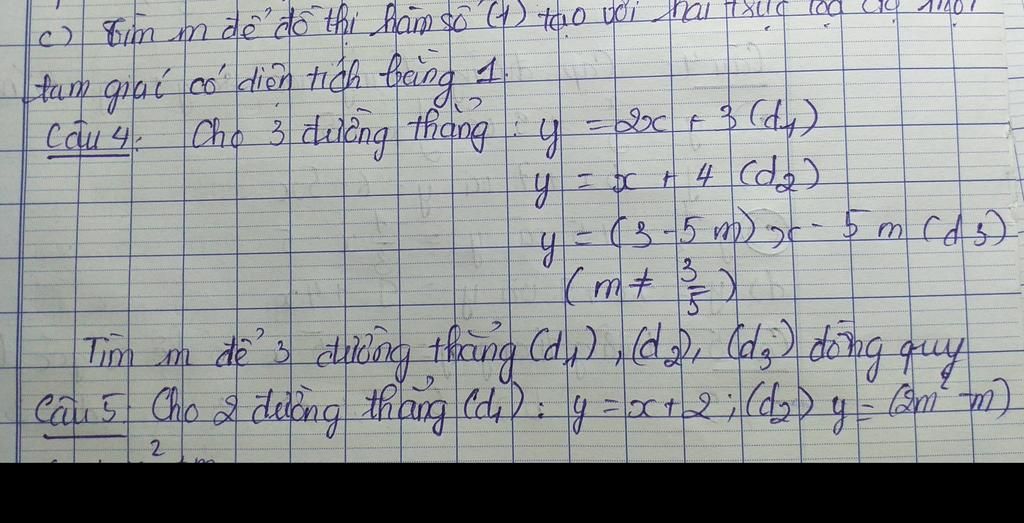 c) Tìm m để đồ thị hàm số (1) tạo với hai trục tọa độ một
tam giác có diện tích bằng 1.
Câu 4: Cho 3 đường thẳng : y = 2x + 3 (d1)
y = x + 4 (d2)
y = (3 - 5m)x - 5m (d3)
(m ≠ 3/5)
Tìm m để 3 đường thẳng (d1), (d2), (d3) đồng quy
Câu 5 Cho 2 đường thẳng (d1): y = x + 2; (d2) y = (2m² - m)